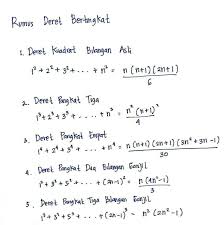 Rumus Deret Bertingkat
1. Deret Kuadrat Bilangan Asli
1² + 2² + 3² + . . . + n² = n(n+1)(2n+1) / 6
2. Deret Pangkat Tiga
1³ + 2³ + 3³ + . . . + n³ = n²(n+1)² / 4
3. Deret Pangkat Empat
1⁴ + 2⁴ + 3⁴ + . . . + n⁴ = n(n+1)(2n+1)(3n²+3n-1) / 30
4. Deret Pangkat Dua Bilangan Ganjil
1² + 3² + 5² + . . . + (2n-1)² = n(4n²-1) / 3
5. Deret Pangkat Tiga Bilangan Ganjil
1³ + 3³ + 5³ + . . . + (2n-1)³ = n²(2n²-1)